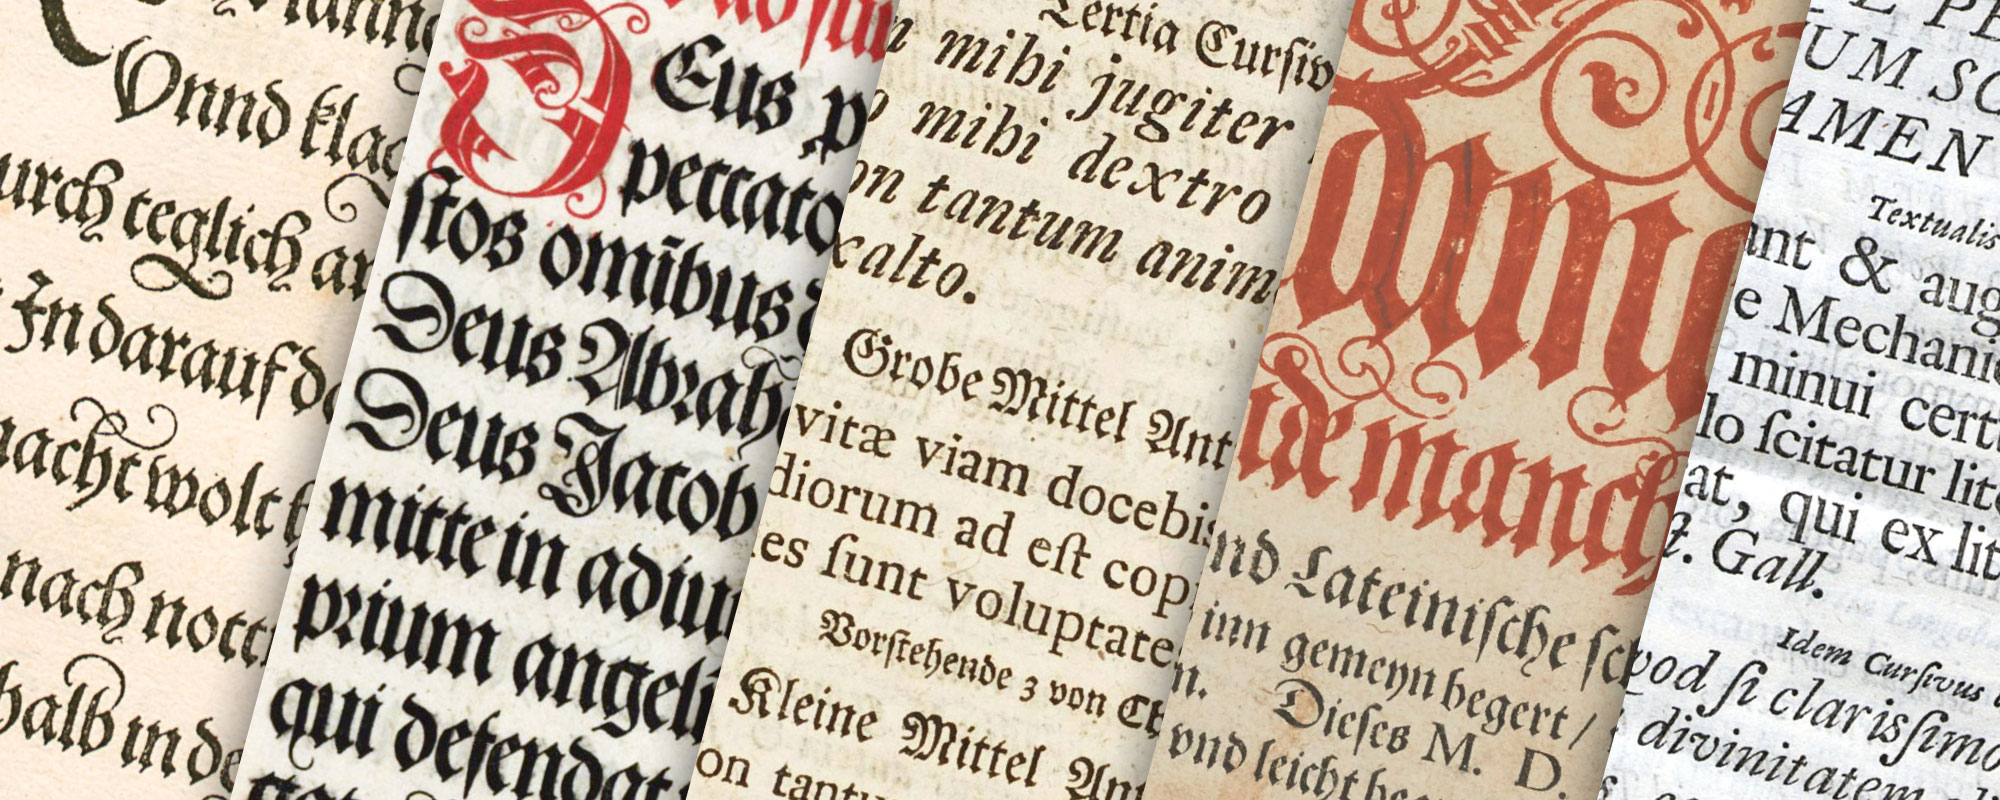 Vnnd klag
urch teglich an
Jn darauf
nacht wolt
nach nott
halb in de
Eus p
peccato
stos omībus
Deus Abrah
Deus Jacob
mitte in adiu
prium angeli
qui defendat
Tertia Curſiv
mihi jugiter
mihi dextro
on tantum anim
xalto.
Grobe Mittel Ant
vitæ viam docebis
diorum ad eſt cop
es ſunt voluptate
Vorſtehende 3 von Ch
Kleine Mittel An
on tantu
manch
nd Lateiniſche ſch
inn gemeyn begert /
n. Dieſes M. D.
vnd leicht be
UM SC
AMEN
Textualis
ant & aug
e Mechani
minui cert
lo ſcitatur lite
at, qui ex lit
t. Gall.
Idem Curſivus
vod ſi clarisſimo
divinitatem